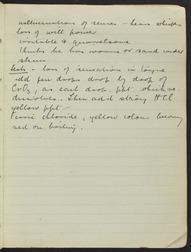 hallucination of senses - hears whispers
loss of will power
irritable & quarrelsome
thinks he has worms or sand under
skin
Tests - loss of sensation in tongue
add few drops drop by drop of
CrO3, as each drop ppt which re
dissolves. Then add strong HCl
yellow ppt -
Ferric chloride, yellow colour becoming
red on boiling.